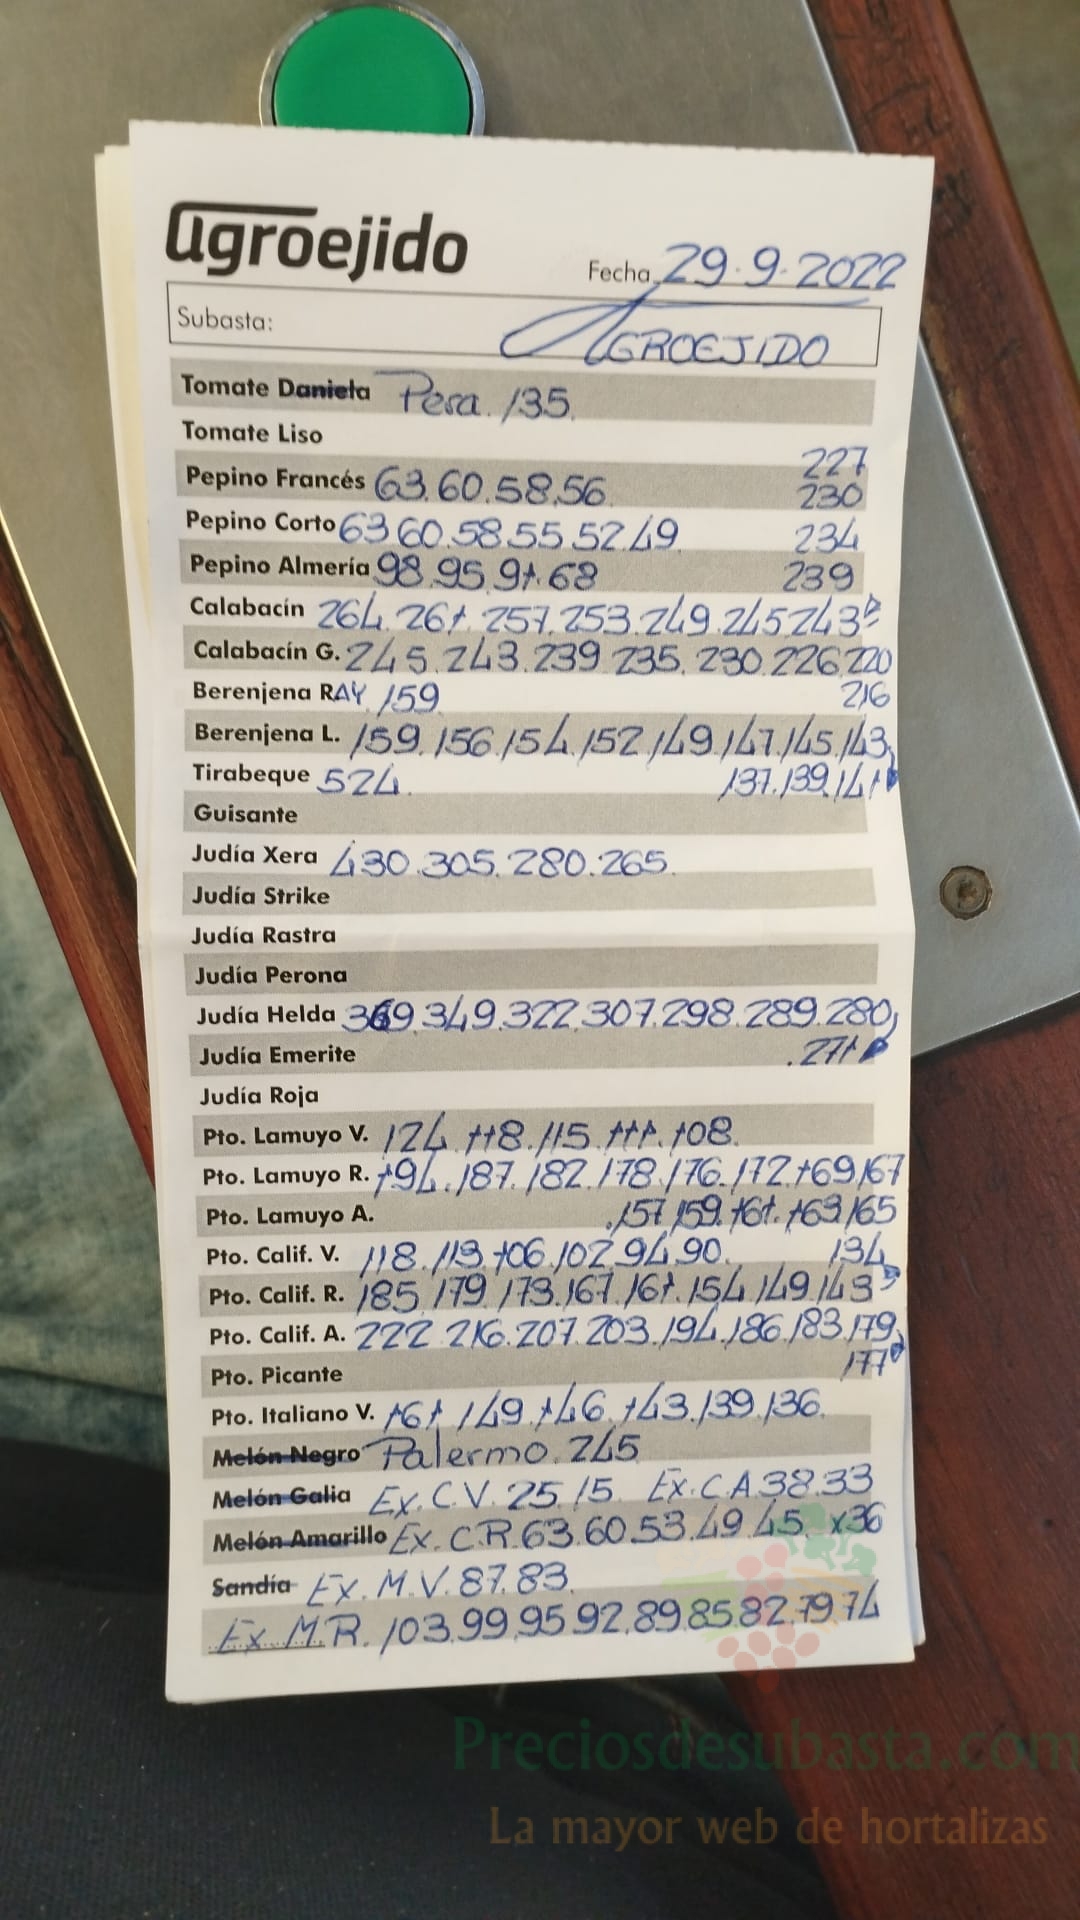 agroejido
Fecha 29.9.2022
Subasta: AGROEJIDO
Tomate Daniela Pera. 135.
Tomate Liso
227
Pepino Francés 63.60.58.56. 230
Pepino Corto 63 60.58.55.52.49 234
Pepino Almería 98.95.91.68 239
Calabacín 264.261.257.253.249.245 243
Calabacín G. 245.243.239.235.230.226.220
Berenjena RAY. 159 216
Berenjena L. 159.156.154.152.149.147.145.143
Tirabeque 524. 137.139.141
Guisante
Judía Xera 430.305.280.265.
Judía Strike
Judía Rastra
Judía Perona
Judía Helda 369.349.322.307.298.289.280
Judía Emerite .271
Judía Roja
Pto. Lamuyo V. 124.118.115.111.108.
Pto. Lamuyo R. 194.187.182.178.176.172.169.167
Pto. Lamuyo A. .157.159.161.163.165
Pto. Calif. V. 118.113.106.102.94.90. 134
Pto. Calif. R. 185.179.173.167.161.154.149.143
Pto. Calif. A. 222.216.207.203.194.186.183.179
Pto. Picante 177
Pto. Italiano V. 161.149.146.143.139.136.
Melón Negro Palermo. 245
Melón Galia Ex. C.V. 25.15. Ex. C.A. 38.33
Melón Amarillo Ex. C.R. 63.60.53.49.45. x36
Sandía Ex. M.V. 87.83.
Ex. M.R. 103.99.95.92.89.85.82.79.74
Preciosdesubasta.com
La mayor web de hortalizas